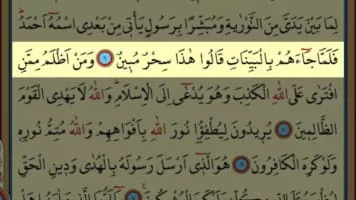 لِمَا بَيْنَ يَدَىَّ مِنَ التَّوْرٰيةِ وَمُبَشِّرًا بِرَسُولٍ يَأْتى مِنْ بَعْدِى اسْمُهُٓ اَحْمَدُۜ
فَلَمَّا جَٓاءَهُمْ بِالْبَيِّنَاتِ قَالُوا هٰذَا سِحْرٌ مُبينٌ ﴿٦﴾ وَمَنْ اَظْلَمُ مِمَّنِ
افْتَرٰى عَلَى اللّٰهِ الْكَذِبَ وَهُوَ يُدْعٰٓى اِلَى الْاِسْلَامِۜ وَاللّٰهُ لَا يَهْدِى الْقَوْمَ
الظَّالِمينَ ﴿٧﴾ يُريدُونَ لِيُطْفِؤُ۫ا نُورَ اللّٰهِ بِاَفْوَاهِهِمْ وَاللّٰهُ مُتِمُّ نُورِه
وَلَوْ كَرِهَ الْكَافِرُونَ ﴿٨﴾ هُوَ الَّذٓى اَرْسَلَ رَسُولَهُ بِالْهُدٰى وَدينِ الْحَقِّ